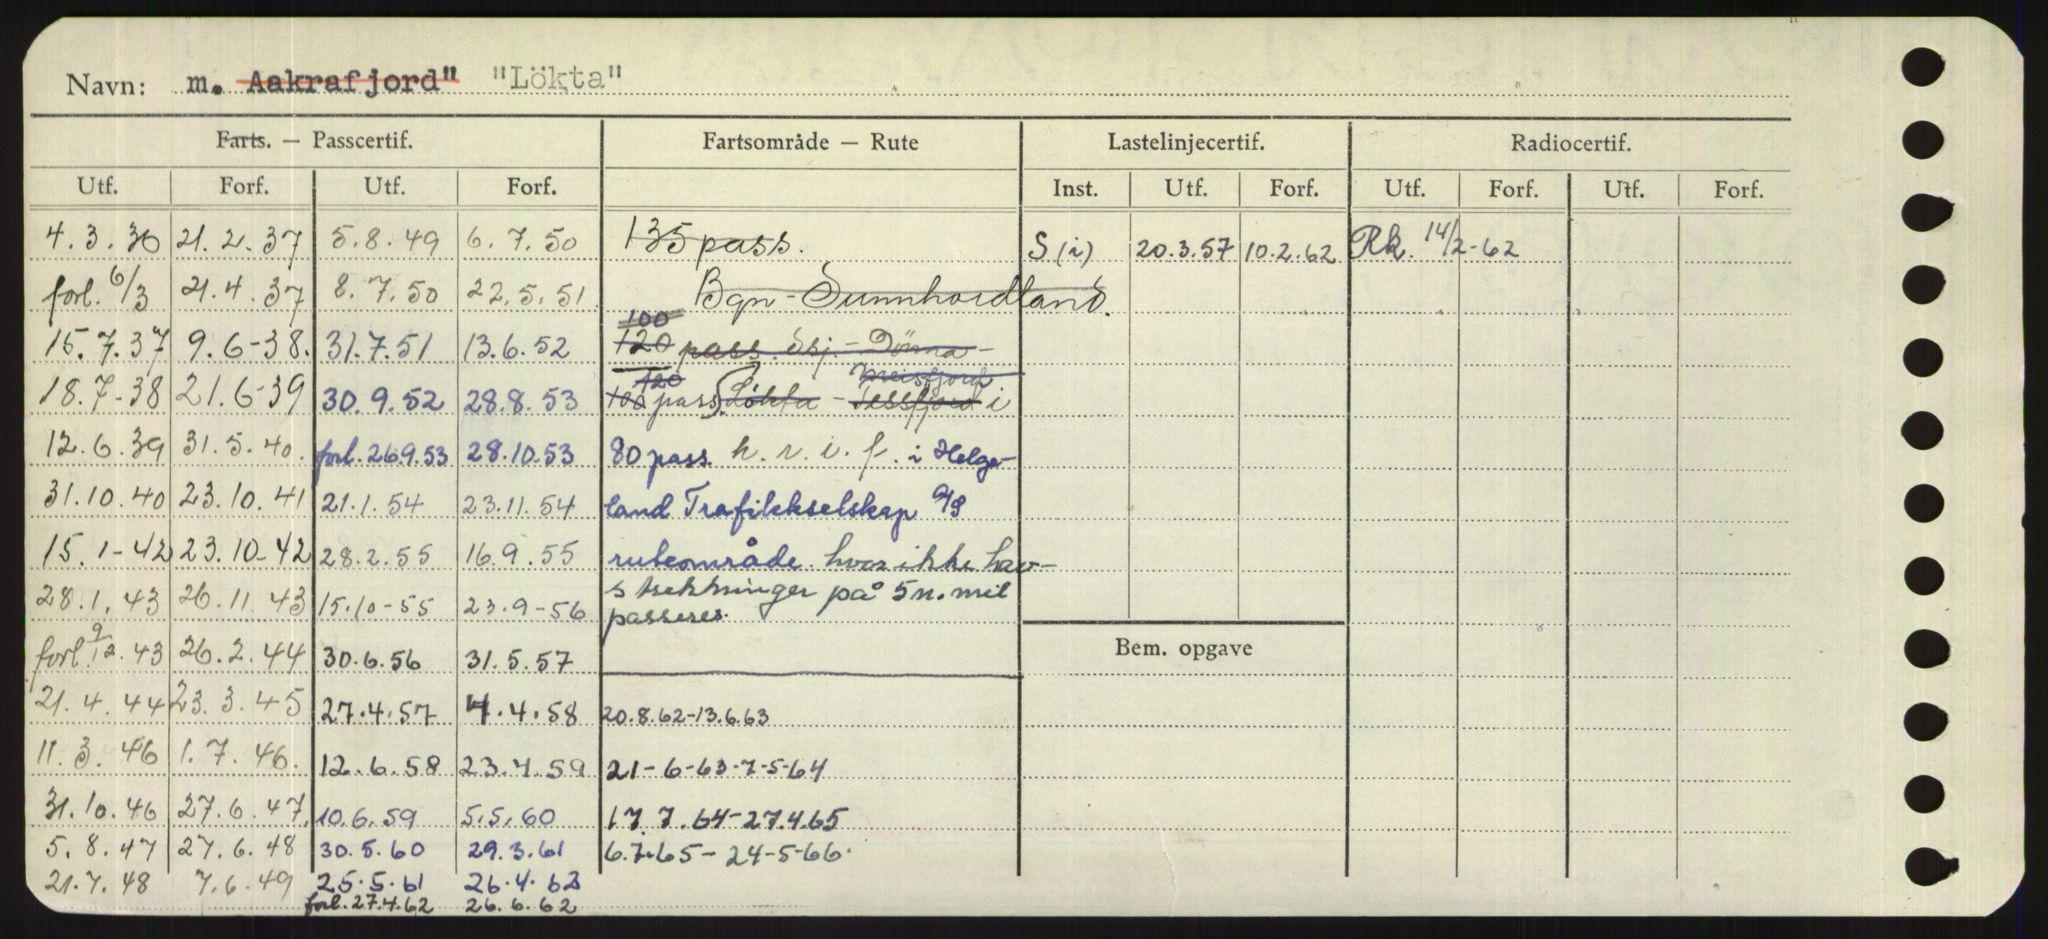 Navn: m. Aakrafjord" "Lökta"
Farts. — Passcertif. Fartsområde — Rute Lastelinjecertif. Radiocertif.
Utf. Forf. Utf. Forf. Inst. Utf. Forf. Utf. Forf. Utf. Forf.
4.3.36 21.2.37 5.8.49 6.7.50 135 pass. S (i) 20.3.57 10.2.62 Rk. 14/2-62
forl. 6/3 21.4.37 8.7.50 22.5.51 Bgn - Sunnhordland.
100
15.7.37 9.6-38. 31.7.51 13.6.52 120 pass. Skj. - Dönna -
120
18.7-38 21.6-39 30.9.52 28.8.53 100 pass. Løkta - i
12.6.39 31.5.40. forl. 26.9.53 28.10.53 80 pass. h. r. i. f. i Helge-
31.10.40 23.10.41 21.1.54 23.11.54 land Trafikkselskap A/S
15.1-42 23.10-42 28.2.55 16.9.55 ruteområde hvor ikke hav-
28.1.43 26.11.43 15.10-55 23.9-56 strekninger på 5 n. mil
passeres.
forl. 9/12.43 26.2.44 30.6.56 31.5.57 Bem. opgave
21.4.44 23.3.45 27.4.57 4.4.58 20.8.62-13.6.63
11.3.46 1.7.46. 12.6.58 23.4.59 21-6-63-7-5-64
31.10.46 27.6.47. 10.6.59 5.5.60 17.7.64-27.4.65
5.8.47 27.6.48 30.5.60 29.3.61 6.7.65-24-5-66.
21.7.48 7.6.49 25.5.61 26.4.62
forl. 27.4.62 26.6.62